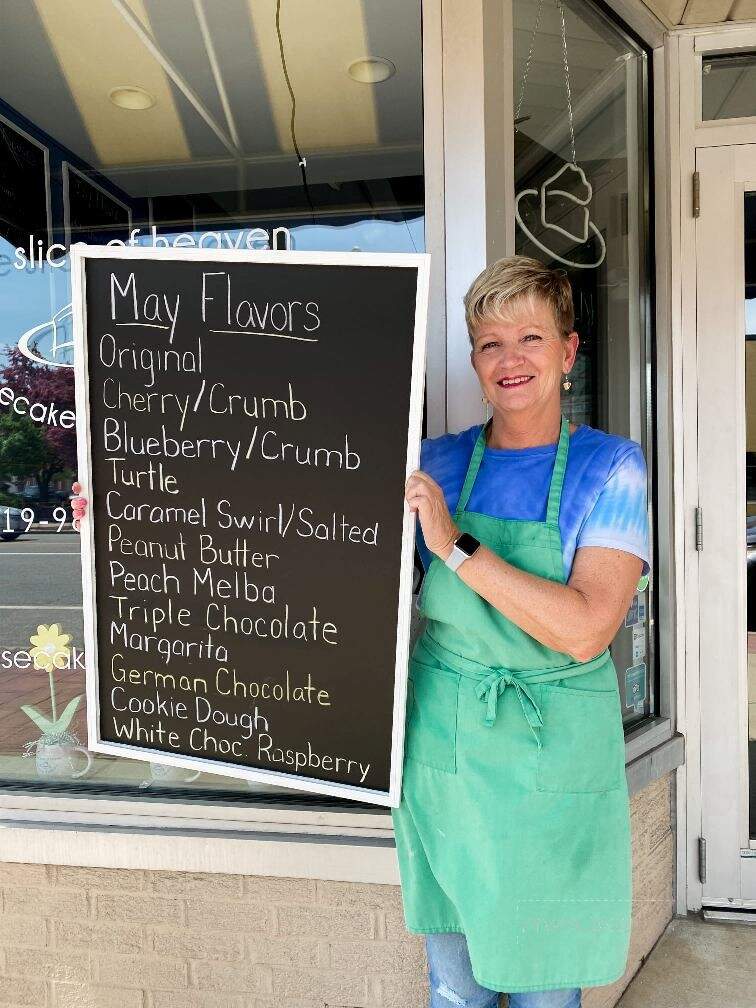 slice of heaven
May Flavors
Original
Cherry/Crumb
Blueberry/Crumb
Turtle
Caramel Swirl/Salted
Peanut Butter
Peach Melba
Triple Chocolate
Margarita
German Chocolate
Cookie Dough
White Choc. Raspberry
ecake
19-9
secak